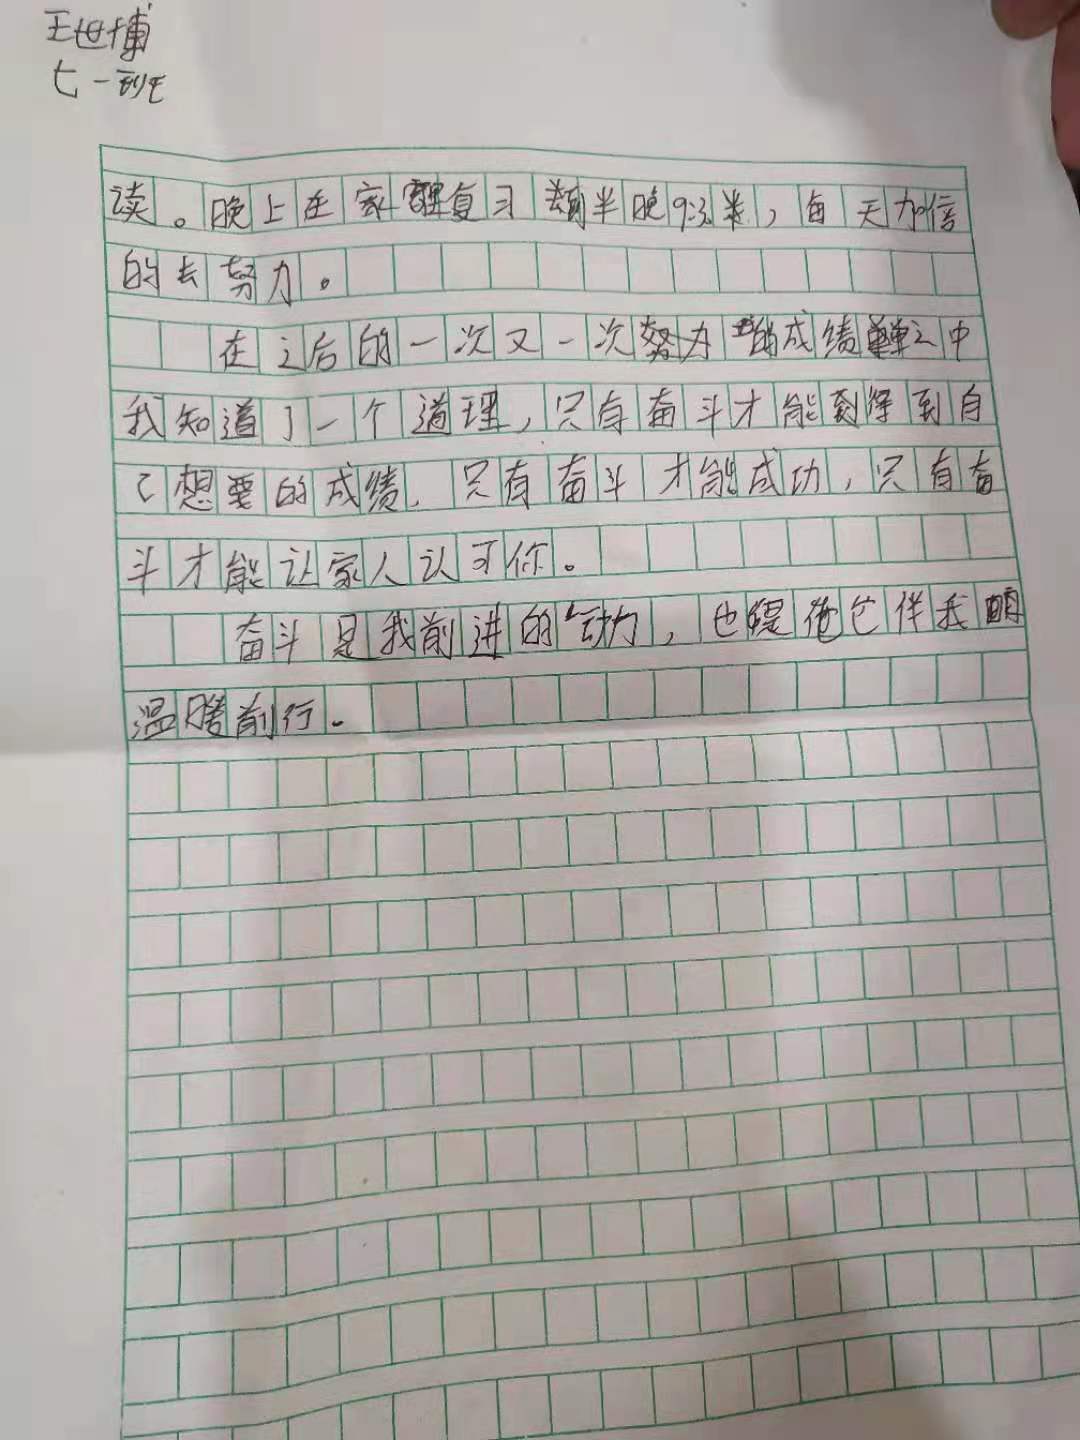 王世博
七一班
读。晚上在家复习到半晚9:3半，每天加倍
的去努力。
在之后的一次又一次努力的成绩单之中
我知道了一个道理，只有奋斗才能得到自
己想要的成绩，只有奋斗才能成功，只有奋
斗才能让家人认可你。
奋斗是我前进的动力，也是它伴我
温暖前行。